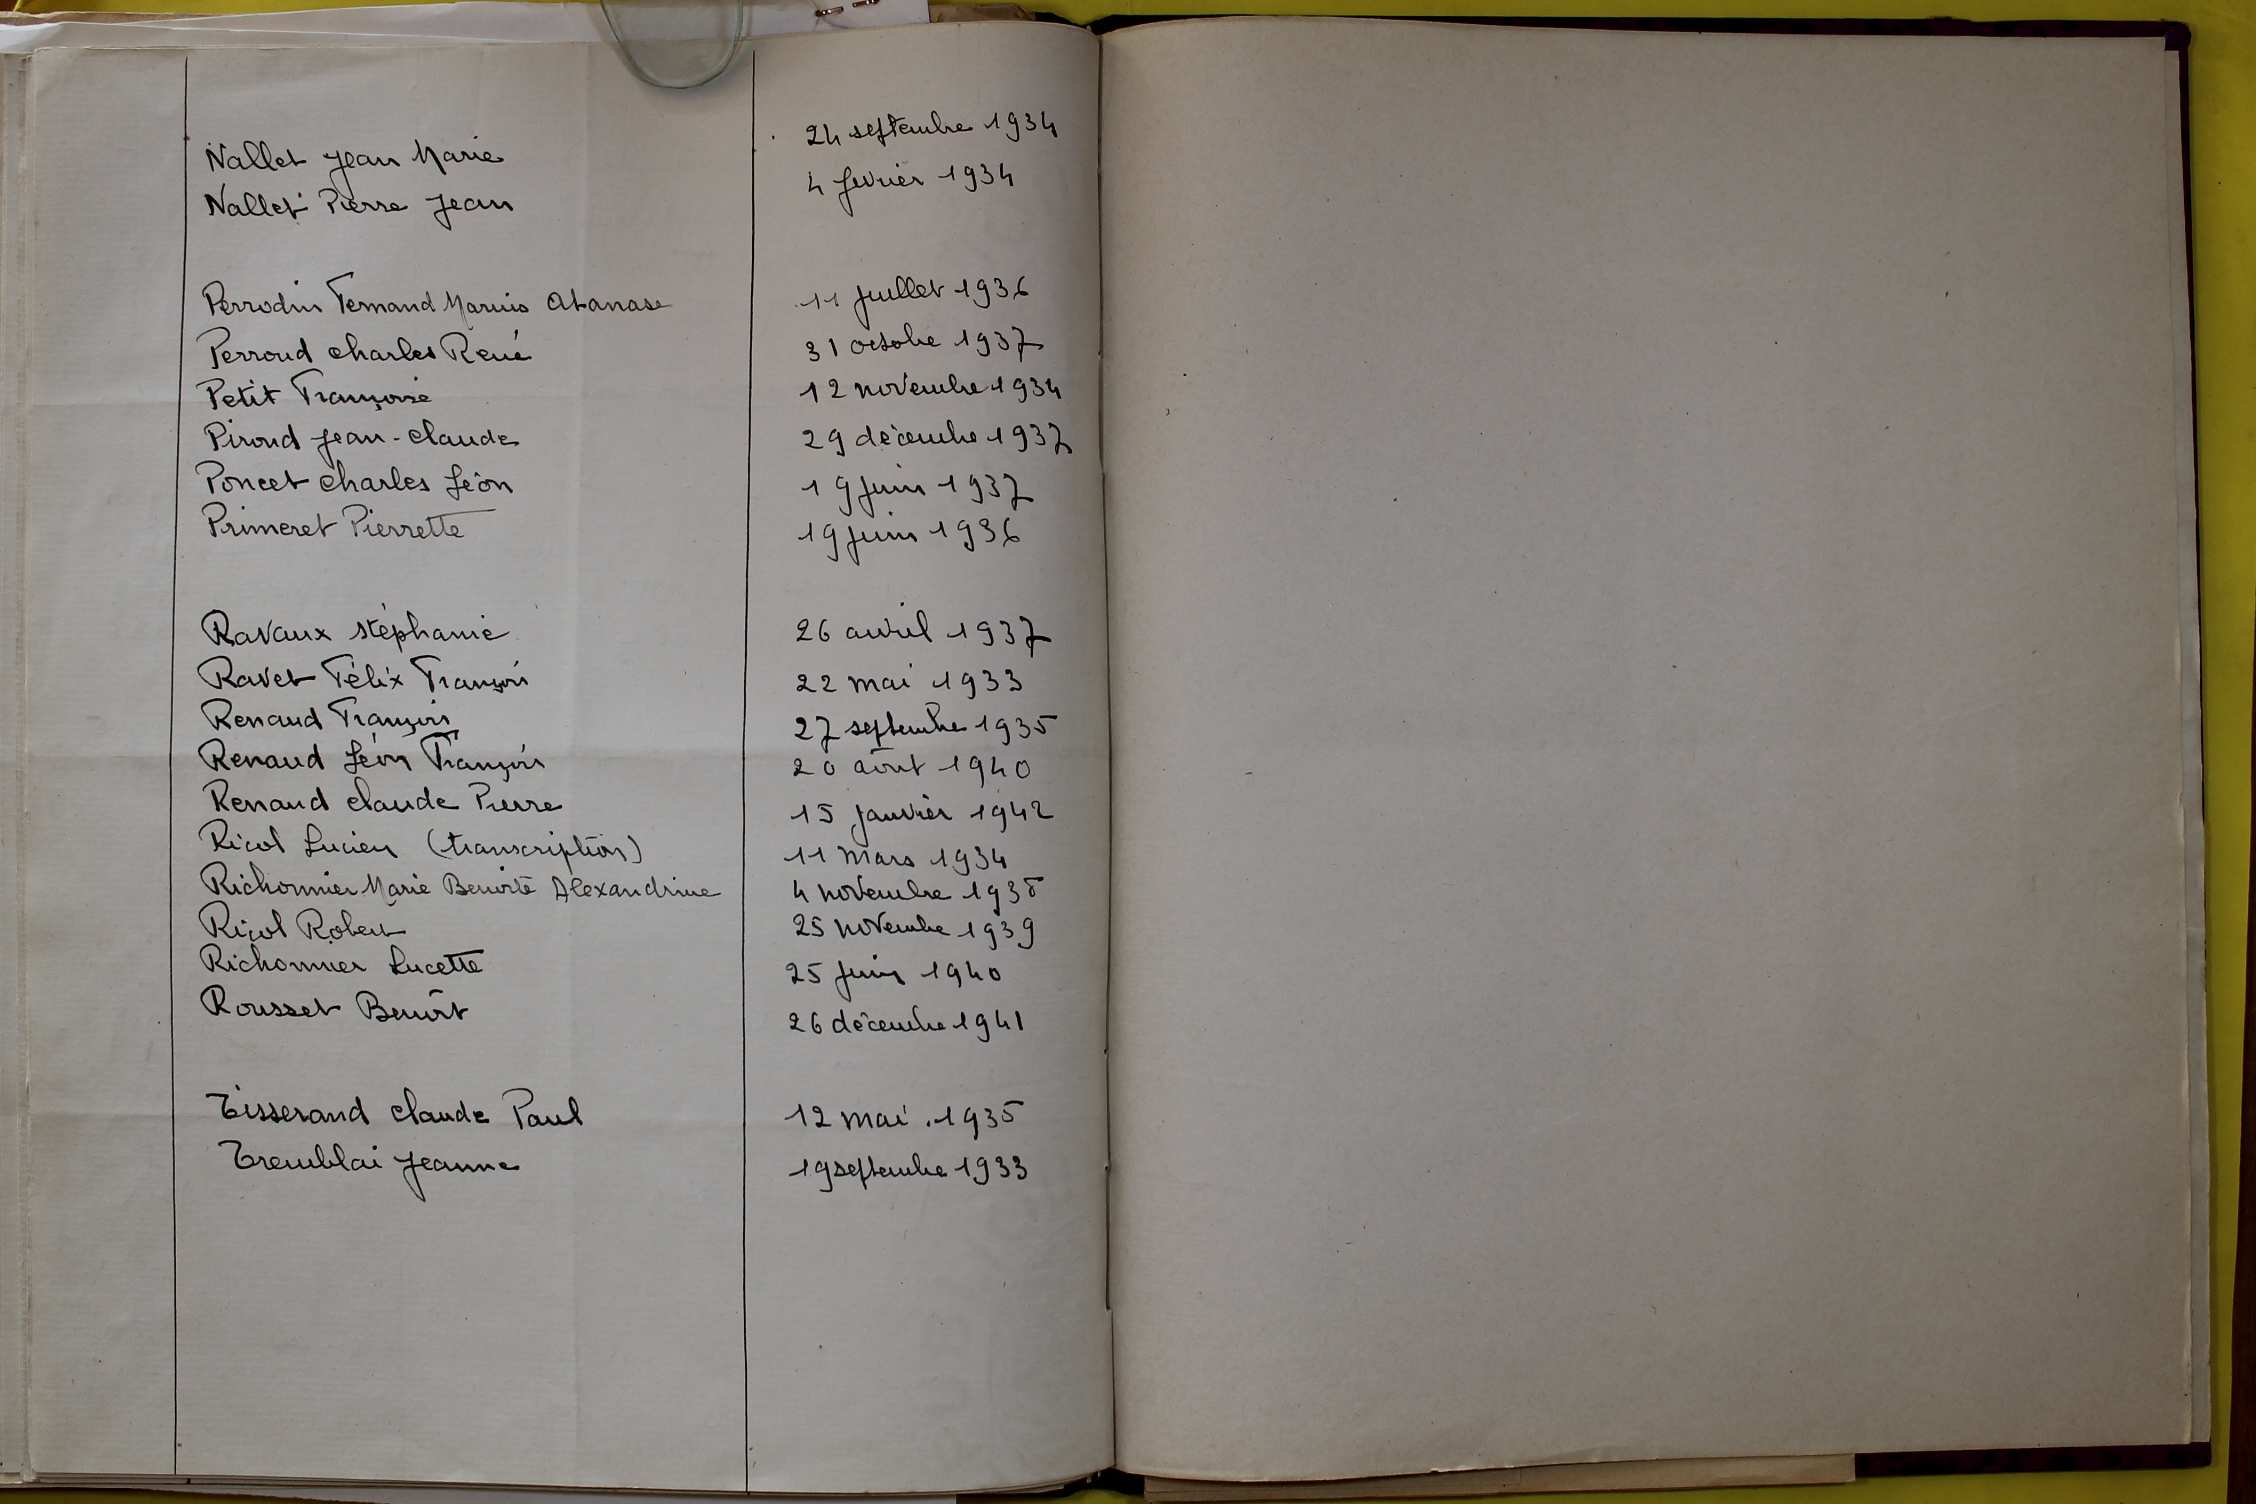 Nallet Jean Marie 24 septembre 1934
Nallet Pierre Jean 4 fevrier 1934
Perrodin Fernand Marius Atanase 11 juillet 1936
Perroud Charles René 31 octobre 1937
Petit Françoise 12 novembre 1934
Piroud Jean-Claude 29 décembre 1937
Poncet Charles Léon 19 juin 1937
Primeret Pierrette 19 juin 1936
Ravaux Stéphanie 26 avril 1937
Ravet Félix François 22 mai 1933
Renaud François 27 septembre 1935
Renaud Léon François 20 août 1940
Renaud Claude Pierre 15 janvier 1942
Ricol Lucien (transcription) 11 mars 1934
Richonnier Marie Benoite Alexandrine 4 novembre
Robert 25 novembre 1939
Richonnier Lucette 25 juin 1940
Rousset Benoît 26 décembre 1941
Tisserand Claude Paul 12 mai 1935
Tremblai Jeanne 19 septembre 1933